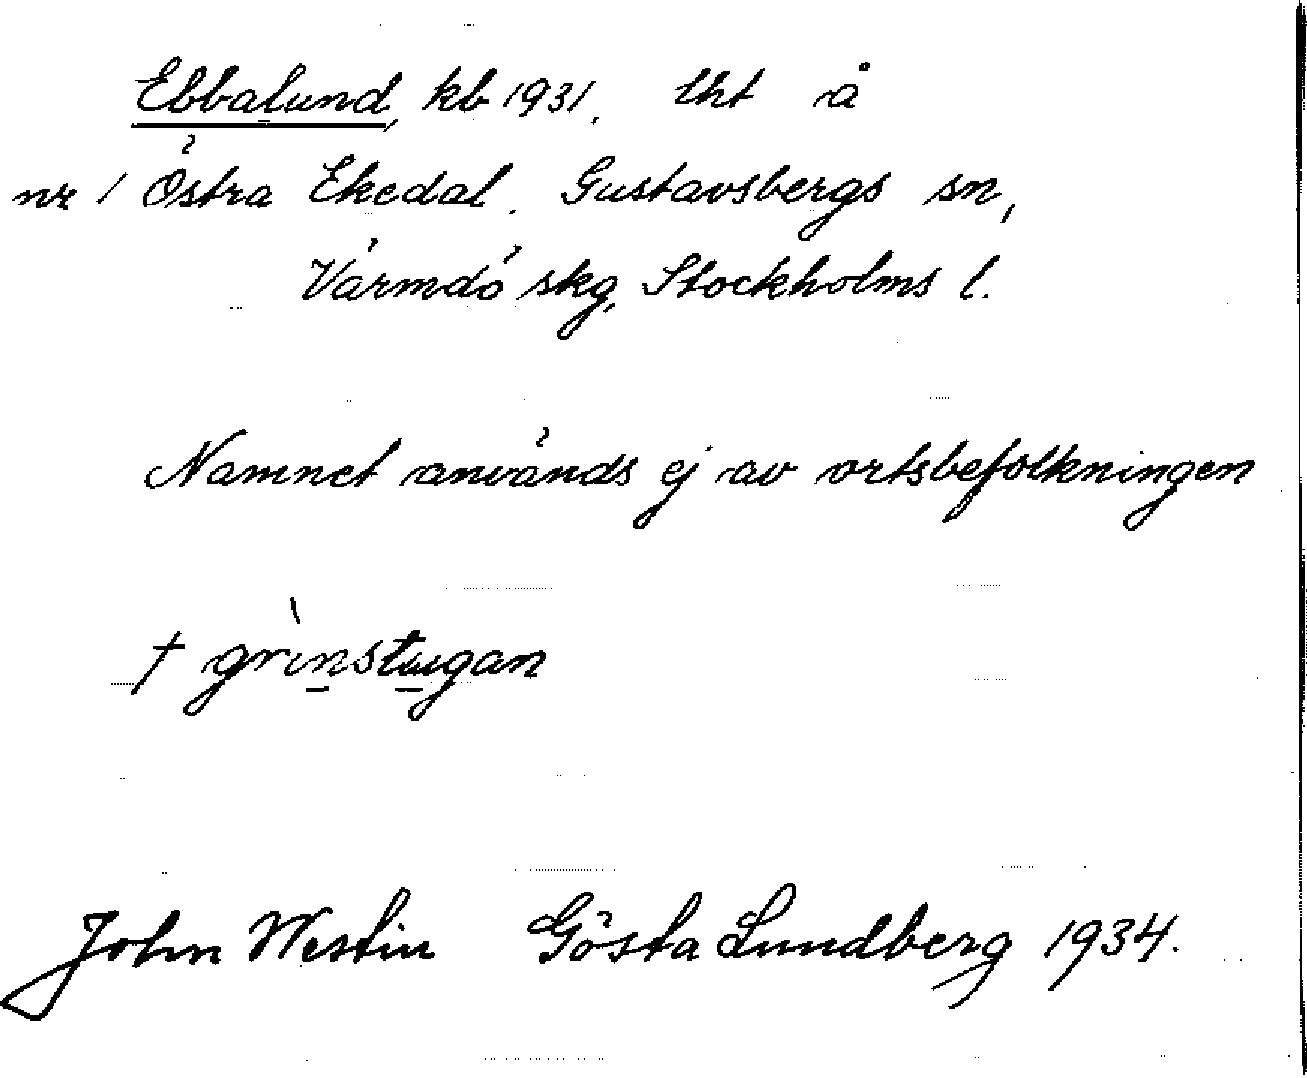 Ebbalund, kb 1931. lht å
nr 1 Östra Ekedal. Gustavsbergs sn,
Värmdö skg, Stockholms l.
Namnet används ej av ortsbefolkningen
† grìnstugan
John Westin Gösta Lundberg 1934.